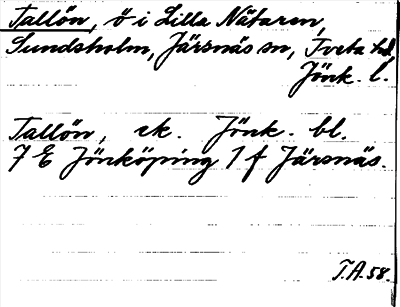 Tallön, ö i Lilla Nätaren,
Sundsholm, Järsnäs sn, Tveta hd,
Jönk. l.
Tallön, ek. Jönk. bl.
7 E Jönköping 1 f Järsnäs.
T.A. 58.